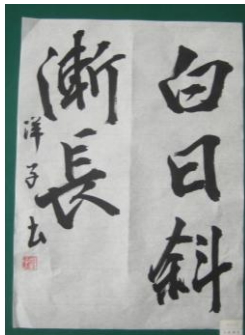 白日斜
漸長
洋子书